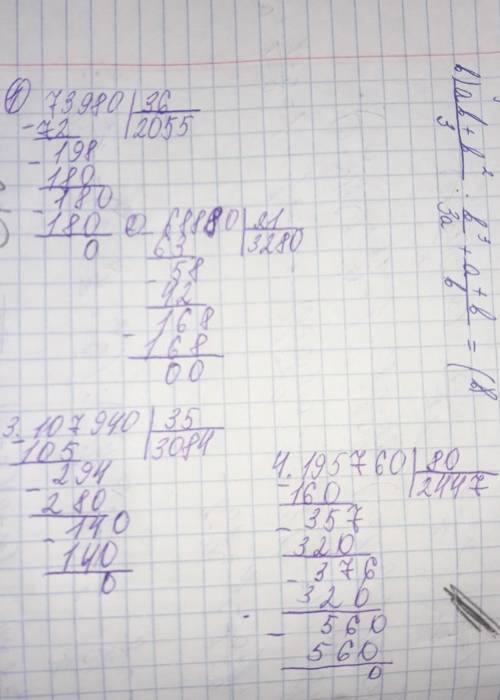 1 73980 | 36
- 72 | 2055
- 198
180
- 180
180
0
2. 68880 | 21
63 | 3280
- 58
42
- 168
168
00
3. 107940 | 35
- 105 | 3084
- 294
280
- 140
140
0
4. 195760 | 80
- 160 | 2447
- 357
320
- 376
320
- 560
560
0